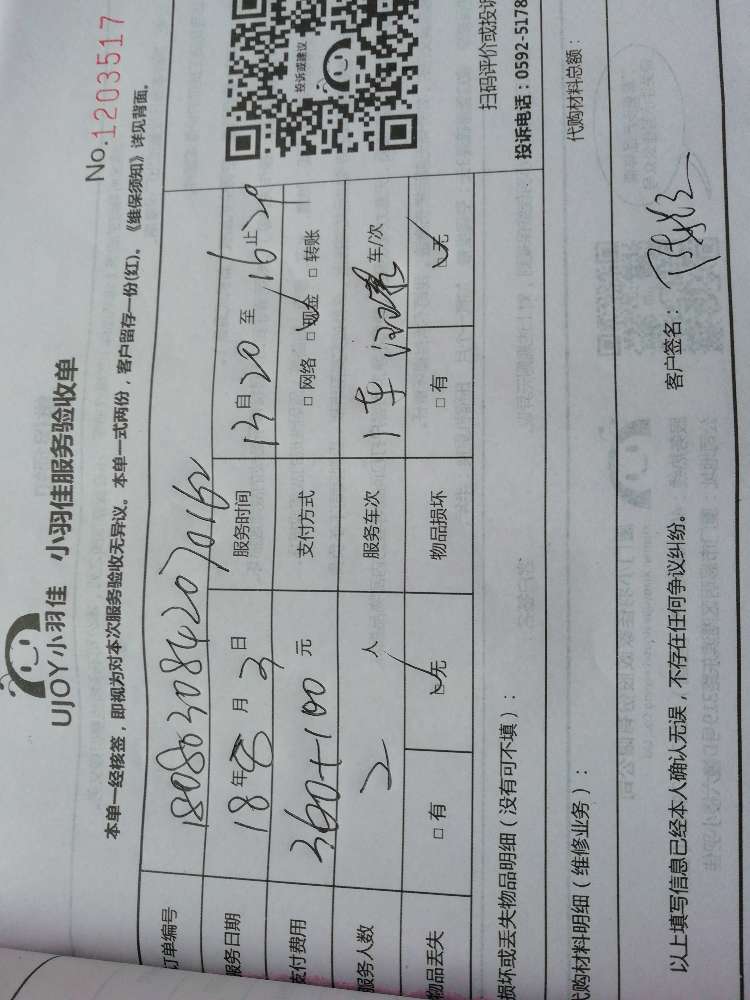 UJOY小羽佳 小羽佳服务验收单
No.1203517
本单一经核签，即视为对本次服务验收无异议。本单一式两份，客户留存一份(红)。《维保须知》详见背面。
订单编号 1808030842070162
服务日期 18年8月3日 服务时间 13自20至16止20
支付费用 360+100元 支付方式 □网络 □现金 □转账
服务人数 2人 服务车次 1车 车/次
物品丢失 □有 □无 物品损坏 □有 □无
投诉或建议
扫码评价或投诉
投诉电话：0592-5178
损坏或丢失物品明细（没有可不填）：
代购材料明细（维修业务）：
代购材料总额：
以上填写信息已经本人确认无误，不存在任何争议纠纷。 客户签名：